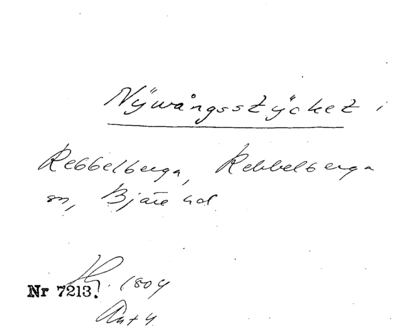 Nÿwångsstÿcket i
Rebbelberga, Rebbelberga
sn, Bjäre hd.
Nr 7213. 1804
Akt 4.